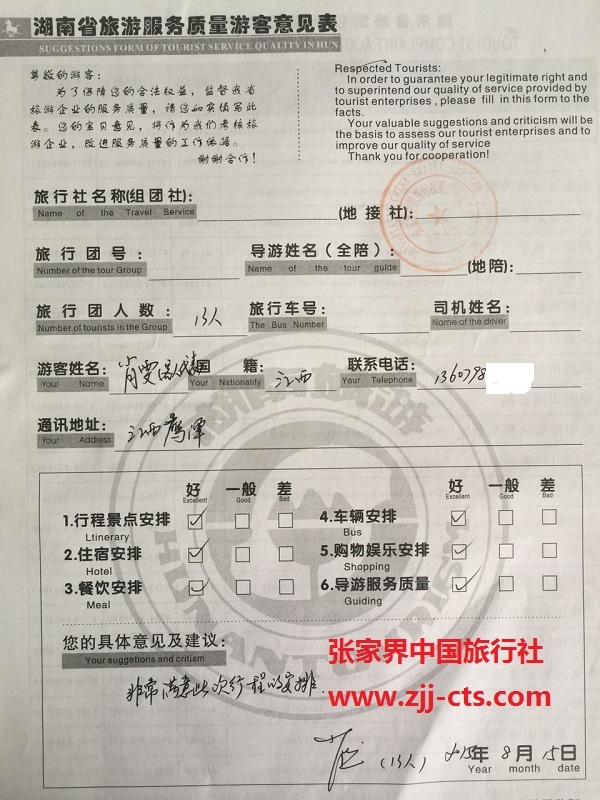 湖南省旅游服务质量游客意见表
SUGGESTIONS FORM OF TOURIST SERVICE QUALITY IN HUN
尊敬的游客：
为了保障您的合法权益，监督我省
旅游企业的服务质量，请您如实填写此
表。您的宝贝意见，将作为我们考核旅
游企业，改进服务质量的工作依据。
谢谢合作！
Respected Tourists:
In order to guarantee your legitimate right and
to superintend our quality of service provided by
tourist enterprises , please fill in this form to the
facts.
Your valuable suggestions and criticism will be
the basis to assess our tourist enterprises and to
improve our quality of service
Thank you for cooperation!
旅行社名称(组团社):
Name of the Travel Service
(地接社):
旅行团号：
Number of the tour Group
导游姓名（全陪）:
Name of the tour guide
(地陪):
旅行团人数：
Number of tourists in the Group
13人
旅行车号：
The Bus Number
司机姓名：
Name of the driver
游客姓名：
Your Name
国籍：
Your Nationality
江西
联系电话：
Your Telephone
1360798
通讯地址：
Your Address
江西鹰潭
好 一般 差 好 一般 差
Excellent Good Bad Excellent Good Bad
1.行程景点安排 4.车辆安排
Ltinerary Bus
2.住宿安排 5.购物娱乐安排
Hotel Shopping
3.餐饮安排 6.导游服务质量
Meal Guiding
您的具体意见及建议：
Your suggetions and critism
非常满意此次行程的安排.
张家界中国旅行社
www.zjj-cts.com
(13人) 2015年 8月 15日
Year month date